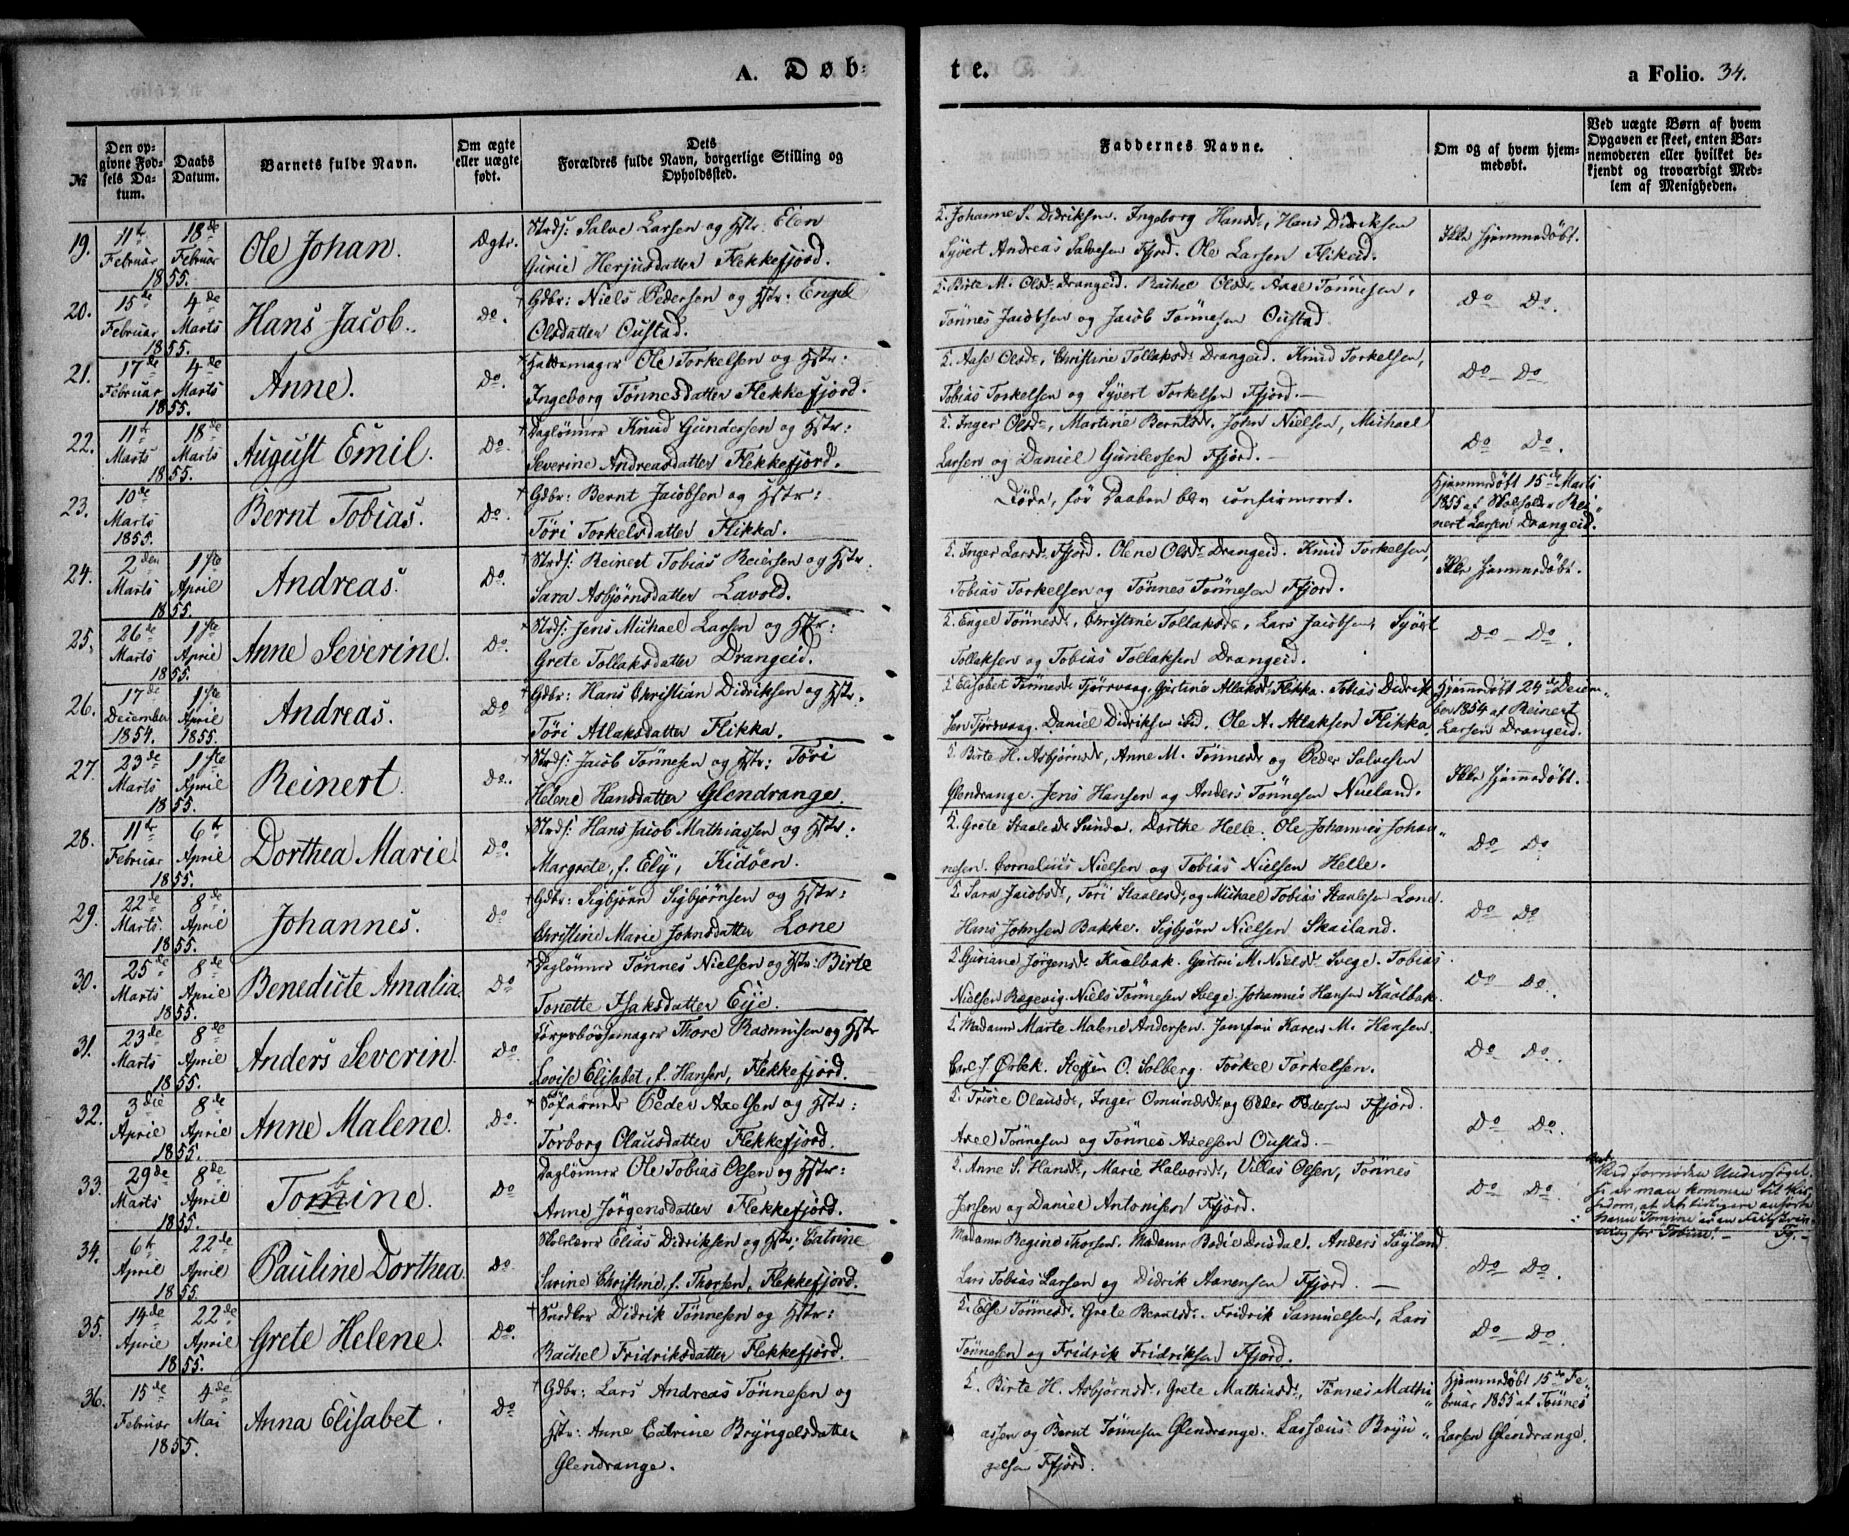 A. Døb-
te.
a Folio. 34.
№
Den opgivne Fødsels Datum.
Daabs Datum.
Barnets fulde Navn.
Om ægte eller uægte født.
Dets Forældres fulde Navn, borgerlige Stilling og Opholdssted.
Faddernes Navne.
Om og af hvem hjemmedøbt.
Ved uægte Børn af hvem Opgaven er skeet, enten Barnemoderen eller hvilket bekjendt og troværdigt Medlem af Menigheden.
19. 11te Februar 18de Februar 1855. Ole Johan. Ægte. Strds: Salve Larsen og Hstr. Elen
Gurie Herjusdatter Flekkefjord.
Johanne S. Didriksen. Ingeborg Hansdr, Hans Didriksen
Syvert Andreas Salvesen Fjord. Ole Larsen Flikeid.
Ikke hjemmedøbt.
20. 15de Februar 4de Marts 1855. Hans Jacob. Do. Gdbr: Niels Pedersen og Hstr: Engel
Olsdatter Oustad.
Birte M. Olsdr Drangeid. Rachel Olsdr Axel Tønnesen,
Tønnes Jacobsen og Jacob Tønnesen Oustad
Do Do.
21. 17de Februar 4de Marts 1855. Anne. Do. Ole Torkelsen og Hstr:
Ingeborg Tønnesdatter Flekkefjord.
Aase Olsdr, Christine Tollaksdr Drangeid. Knud Torkelsen,
Tobias Torkelsen og Syvert Torkelsen Ffjord.
Do Do
22. 11te Marts 18de Marts 1855. August Emil. Do. Daglønner Knud Gundersen og Hstr:
Severine Andreasdatter Flekkefjord.
Inger Olsdr, Martine Berntsdr. John Nielsen, Michael
Larsen og Daniel Gundersen Ffjord.
Do Do.
23. 10de Marts 1855. Bernt Tobias. Do. Gdbr: Bernt Jacobsen og Hstr:
Töri Torkelsdatter Flikka.
Døde, før Daaben blev confirmeret.
Hjemmedøbt 15de Marts
1855 af Skoleholder Rei-
nert Larsen Drangeid.
24. 2den Marts 1ste April 1855. Andreas. Do. Strds: Reinert Tobias Reiersen og Hstr.
Sara Asbjørnsdatter Lavold.
Inger Larsdr Ffjord. Olene Olsdr Drangeid. Knud Torkelsen,
Tobias Torkelsen og Tønnes Tønnesen Ffjord.
Ikke hjemmedøbt.
25. 26de Marts 1ste April 1855. Anne Severine. Do. Strds: Jens Michael Larsen og Hstr:
Grete Tollaksdatter Drangeid.
Engel Tønnesdr, Christine Tollaksdr, Lars Jacobsen, Syvert
Tollaksen og Tobias Tollaksen Drangeid.
Do Do.
26. 17de December 1854. 1ste April 1855. Andreas. Do Gdbr: Hans Christian Didriksen og Hstr.
Töri Atlaksdatter Flikka.
Elisabet Tønnesdr Tjørsvaag. Gjertine Atlaksdr Flikka. Tobias Didrik-
sen Tjørsvaag. Daniel Didriksen ibid. Ole A. Atlaksen Flikka.
Hjemmedøbt 24de Decem-
ber 1854 af Reinert
Larsen Drangeid.
27. 23de Marts 1ste April 1855. Reinert. Do. Strds: Jacob Tønnesen og Hstr: Töri
Helene Hansdatter Glendrange.
Birte H. Asbjørnsdr, Anne M. Tønnesdr og Peder Salvesen
Glendrange. Jens Hansen og Anders Tønnesen Nueland.
Ikke hjemmedøbt.
28. 11te Februar 6te April 1855. Dorthea Marie. Do. Strds: Hans Jacob Mathiassen og Hstr:
Margrete, f. Ely, Kidöen.
Grete Staalesdr Sunde. Dorthe Helle. Ole Johannes Johan-
nesen. Cornelius Nielsen og Tobias Nielsen Helle.
Do Do.
29. 22de Marts 8de April 1855. Johannes. Do Gdbr: Sigbjørn Sigbjørnsen og Hstr:
Christine Marie Johnsdatter Lone
Sara Jacobsdr, Töri Staalesdr, og Michael Tobias Staalesen Lone.
Hans Johnsen Bakke. Sigbjørn Nielsen Skailand.
Do Do
30. 25de Marts 8de April 1855. Benedicte Amalia. Do Daglønner Tønnes Nielsen og Hstr: Birte
Tonette Isaksdatter Eije.
Guriane Jørgensdr Kaalbak. Gjertru M. Nielsdr Svege. Tobias
Nielsen Regevig. Niels Tønnesen Svege. Johannes Hansen Kaalbak.
Do Do.
31. 23de Marts 8de April 1855. Anders Severin. Do. Thore Rasmusen og Hstr
Lovise Elisabet, f. Hansen, Flekkefjord.
Madame Marte Malene Andersen. Jomfru Karen M. Hansen.
Carl J. Ørbek. Steffen O. Solberg. Torkel Torkelsen.
Do Do.
32. 3die April 8de April 1855. Anne Malene. Do. Peder Axelsen og Hstr:
Torborg Clausdatter Flekkefjord.
Trine Olausdr, Inger Omundsdr og Peder Pedersen Ffjord.
Axel Tønnesen og Tønnes Axelsen Oustad.
Do Do.
33. 29de Marts 8de April 1855. Tomine. b Do Daglønner Ole Tobias Olsen og Hstr:
Anne Jørgensdatter Flekkefjord.
Anne S. Hansdr, Marie Halvorsdr, Villas Olsen, Tønnes
Jensen og Daniel Antonisen Ffjord.
Do Do.
Ved fornøden Undersøgel-
se er man kommen til
at det tidligere anførte
Navn Tomine er en
for Tobine.
34. 6te April 22de April 1855. Pauline Dorthea. Do. Elias Didriksen og Hstr: Catrine
Sarine Christine, f. Thorsen, Flekkefjord.
Madame Regine Thorsen. Madame Bodie Drisdal. Anders Søyland.
Lars Tobias Larsen og Didrik Aanensen Ffjord.
Do Do.
35. 14de April 22de April 1855. Grete Helene. Do. Snedker Didrik Tønnesen og Hstr:
Rachel Fridriksdatter Flekkefjord.
Else Tønnesdr. Grete Berntsdr. Fridrik Samuelsen, Lars
Tønnesen og Fridrik Fridriksen Ffjord.
Do Do.
36. 15de Februar 4de Mai 1855. Anna Elisabet. Do Gdbr: Lars Andreas Tønnesen og
Hstr: Anne Catrine Bryngelsdatter
Glendrange.
Birte H. Asbjørnsdr, Grete Mathiasdr, Tønnes Mathi-
assen og Bernt Tønnesen Glendrange. Lassæus Bryn-
gelsen Ffjord.
Hjemmedøbt 15de Fe-
bruar 1855 af Tønnes
Larsen Glendrange.